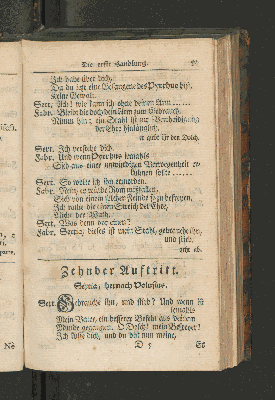 Die erste Handlung.
Ich habe über dich,
Da du jetzt eine Gefangene des Pyrrhus bist,
Keine Gewalt.
Sext. Ach! wie kann ich ohne deinen Arm
Fabr. Bleibt dir doch dein Arm zum Gebrauch.
Nimm hin; ein Stahl ist zur Vertheidigung
der Ehre hinlänglich.
er giebt ihr den Dolch.
Sext. Ich verstehe dich.
Fabr. Und wenn Pyrrhus jemahls
Sich aus einer unwürdigen Verwegenheit er-
kühnen sollte
Sext. So wollte ich ihn ermorden.
Fabr. Nein, es würde Rom mißfallen,
Sich von einem solcher Feinde zu befreyen,
Ich wollte die einen Streich der Ehre,
Nicht der Wuth.
Sext. Was denn vor einen?
Fabr. Sextia, dieses ist mein Stahl, gebrauche ihn,
und stirb.
geht ab.
Zehnder Auftritt.
Sextia, hernach Volusius.
Sext. Gebrauche ihn, und stirb? Und wenn ist
jemahls
Mein Vater, ein besserer Befehl aus deinem
Munde gegangen. O Dolch! mein Befreyer!
Ich küsse dich, und du bist nun meine,
D 5